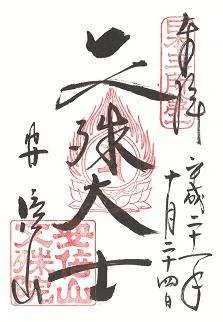 奉拝
平成二十一年
十月二十四日
文殊大士
安倍山
安倍山
文殊院